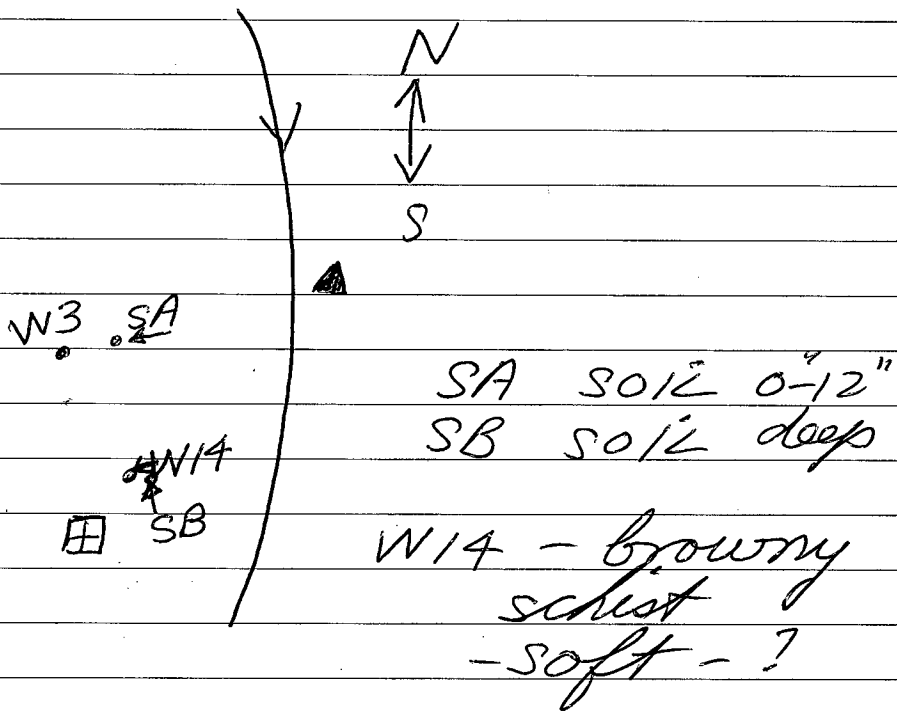 N
S
W3 SA
SA SOIL 0"-12"
SB SOIL deep
W14
SB
W14 - browny
schist
- soft - ?